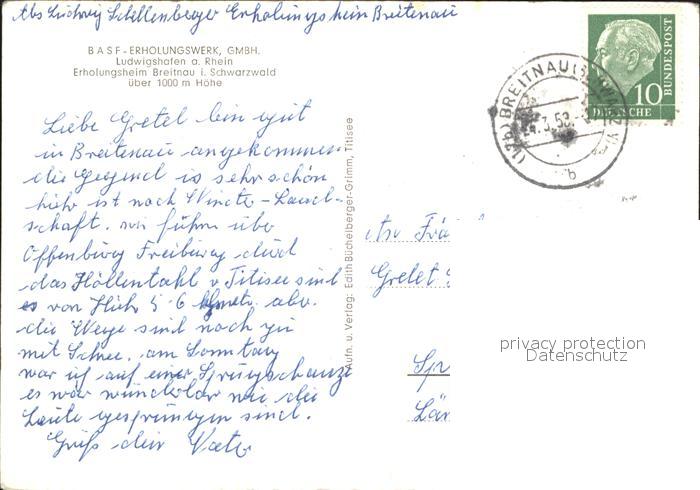 Abs Ludwig Schellenberger Erholungsheim Breitenau
BASF-ERHOLUNGSWERK, GMBH.
Ludwigshafen a. Rhein
Erholungsheim Breitnau i. Schwarzwald
über 1000 m Höhe
Liebe Gretel bin gut
in Breitenau angekommen
die Gegend is sehr schön
hihr ist noch Winter-Land-
schaft. wir fuhren über
Offenburg Freiburg durch
das Höllentahl v Titisee sind
es von Hihr 5-6 abv.
die Wege sind noch zu
mit Schnee. am Sonntag
war ich auf einer Sprungschanze
es war wunderbar wie die
Leute gesprungen sind.
Gruß dein Vater
Aufn. u. Verlag: Edith Büchelberger-Grimm, Titisee
BREITNAU (SCHWARZW)
(17b)
3.58
b
10
DEUTSCHE
BUNDESPOST
An Frä
Gretel
Spr
Län
privacy protection
Datenschutz